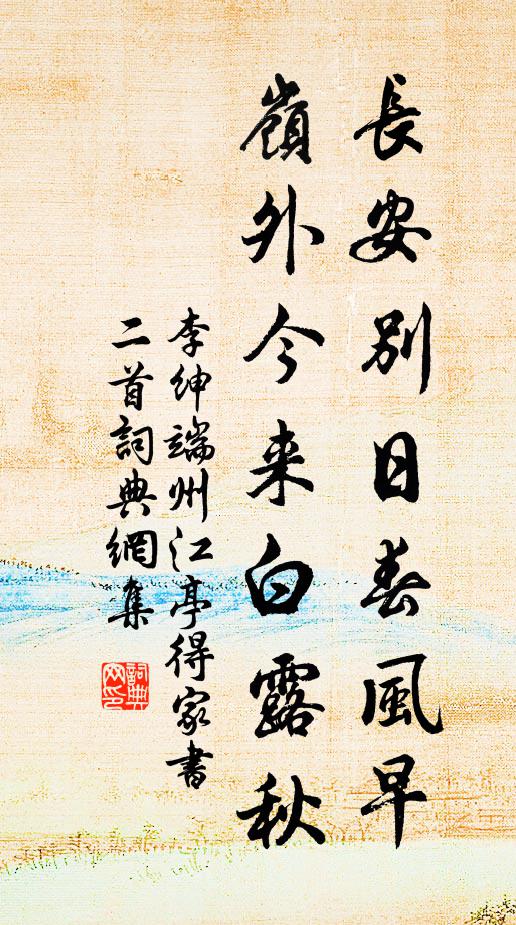 長安別日春風早
嶺外今来白露秋
李紳端州江亭得家書
二首詞典網集
詞典
网印